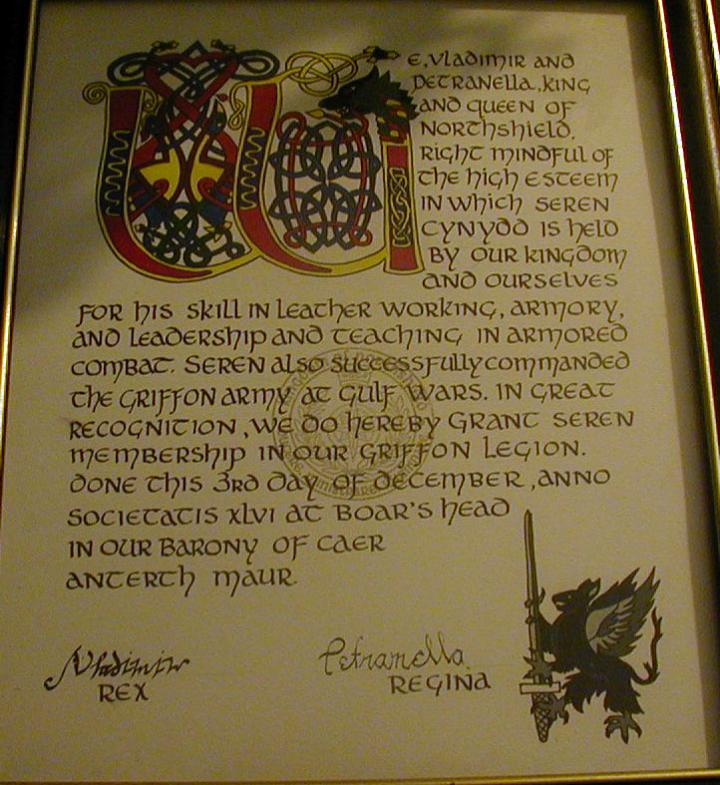 WE, VLADIMIR AND
PETRANELLA, KING
AND QUEEN OF
NORTHSHIELD,
RIGHT MINDFUL OF
THE HIGH ESTEEM
IN WHICH SEREN
CYNYDD IS HELD
BY OUR KINGDOM
AND OURSELVES
FOR HIS SKILL IN LEATHER WORKING, ARMORY,
AND LEADERSHIP AND TEACHING IN ARMORED
COMBAT. SEREN ALSO SUCCESSFULLY COMMANDED
THE GRIFFON ARMY AT GULF WARS. IN GREAT
RECOGNITION, WE DO HEREBY GRANT SEREN
MEMBERSHIP IN OUR GRIFFON LEGION.
DONE THIS 3RD DAY OF DECEMBER, ANNO
SOCIETATIS XLVI AT BOAR'S HEAD
IN OUR BARONY OF CAER
ANTERTH MAUR.
Vladimir
REX
Petranella
REGINA